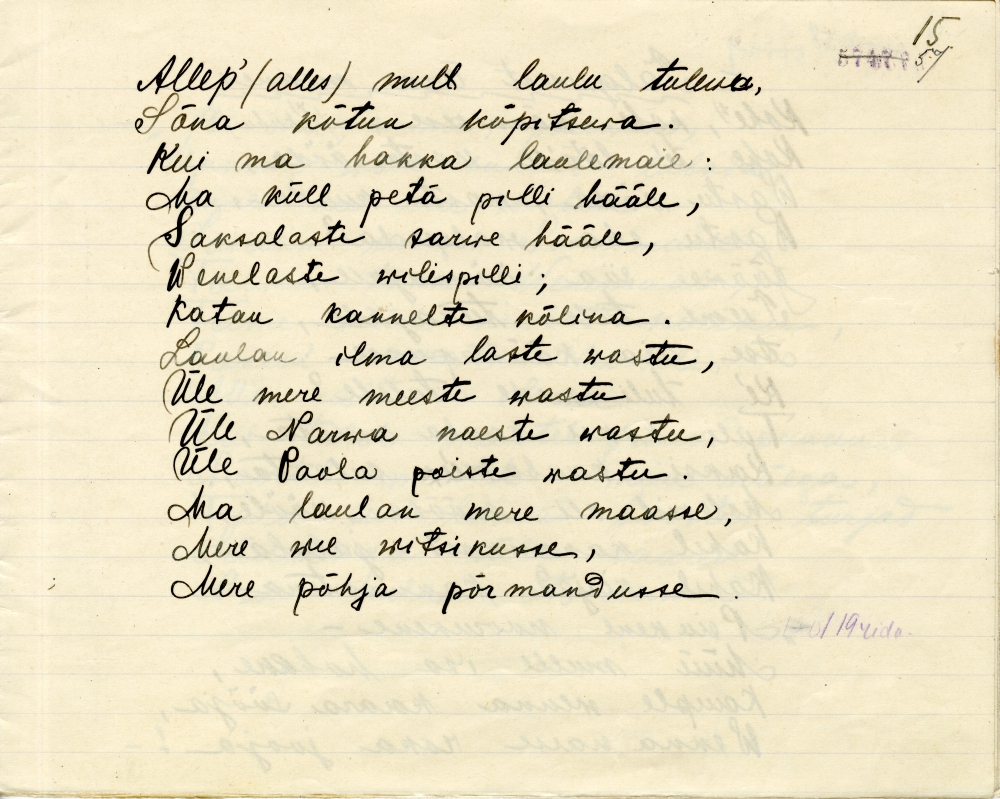 15
57
Allep' (alles) mull laulu tulewa,
Sõna kõtun kõpitsewa.
Kui ma hakka laulemaie:
Ma küll petä pilli hääle,
Saksalaste sarwe hääle,
Wenelaste wilispilli;
Katan kannelte kõlina.
Laulan ilma laste wastu,
Üle mere meeste wastu
Üle Narwa naeste wastu,
Üle Paola poiste wastu.
Ma laulan mere maasse,
Mere wee witsikusse,
Mere põhja põrmandusse.
19 rida.